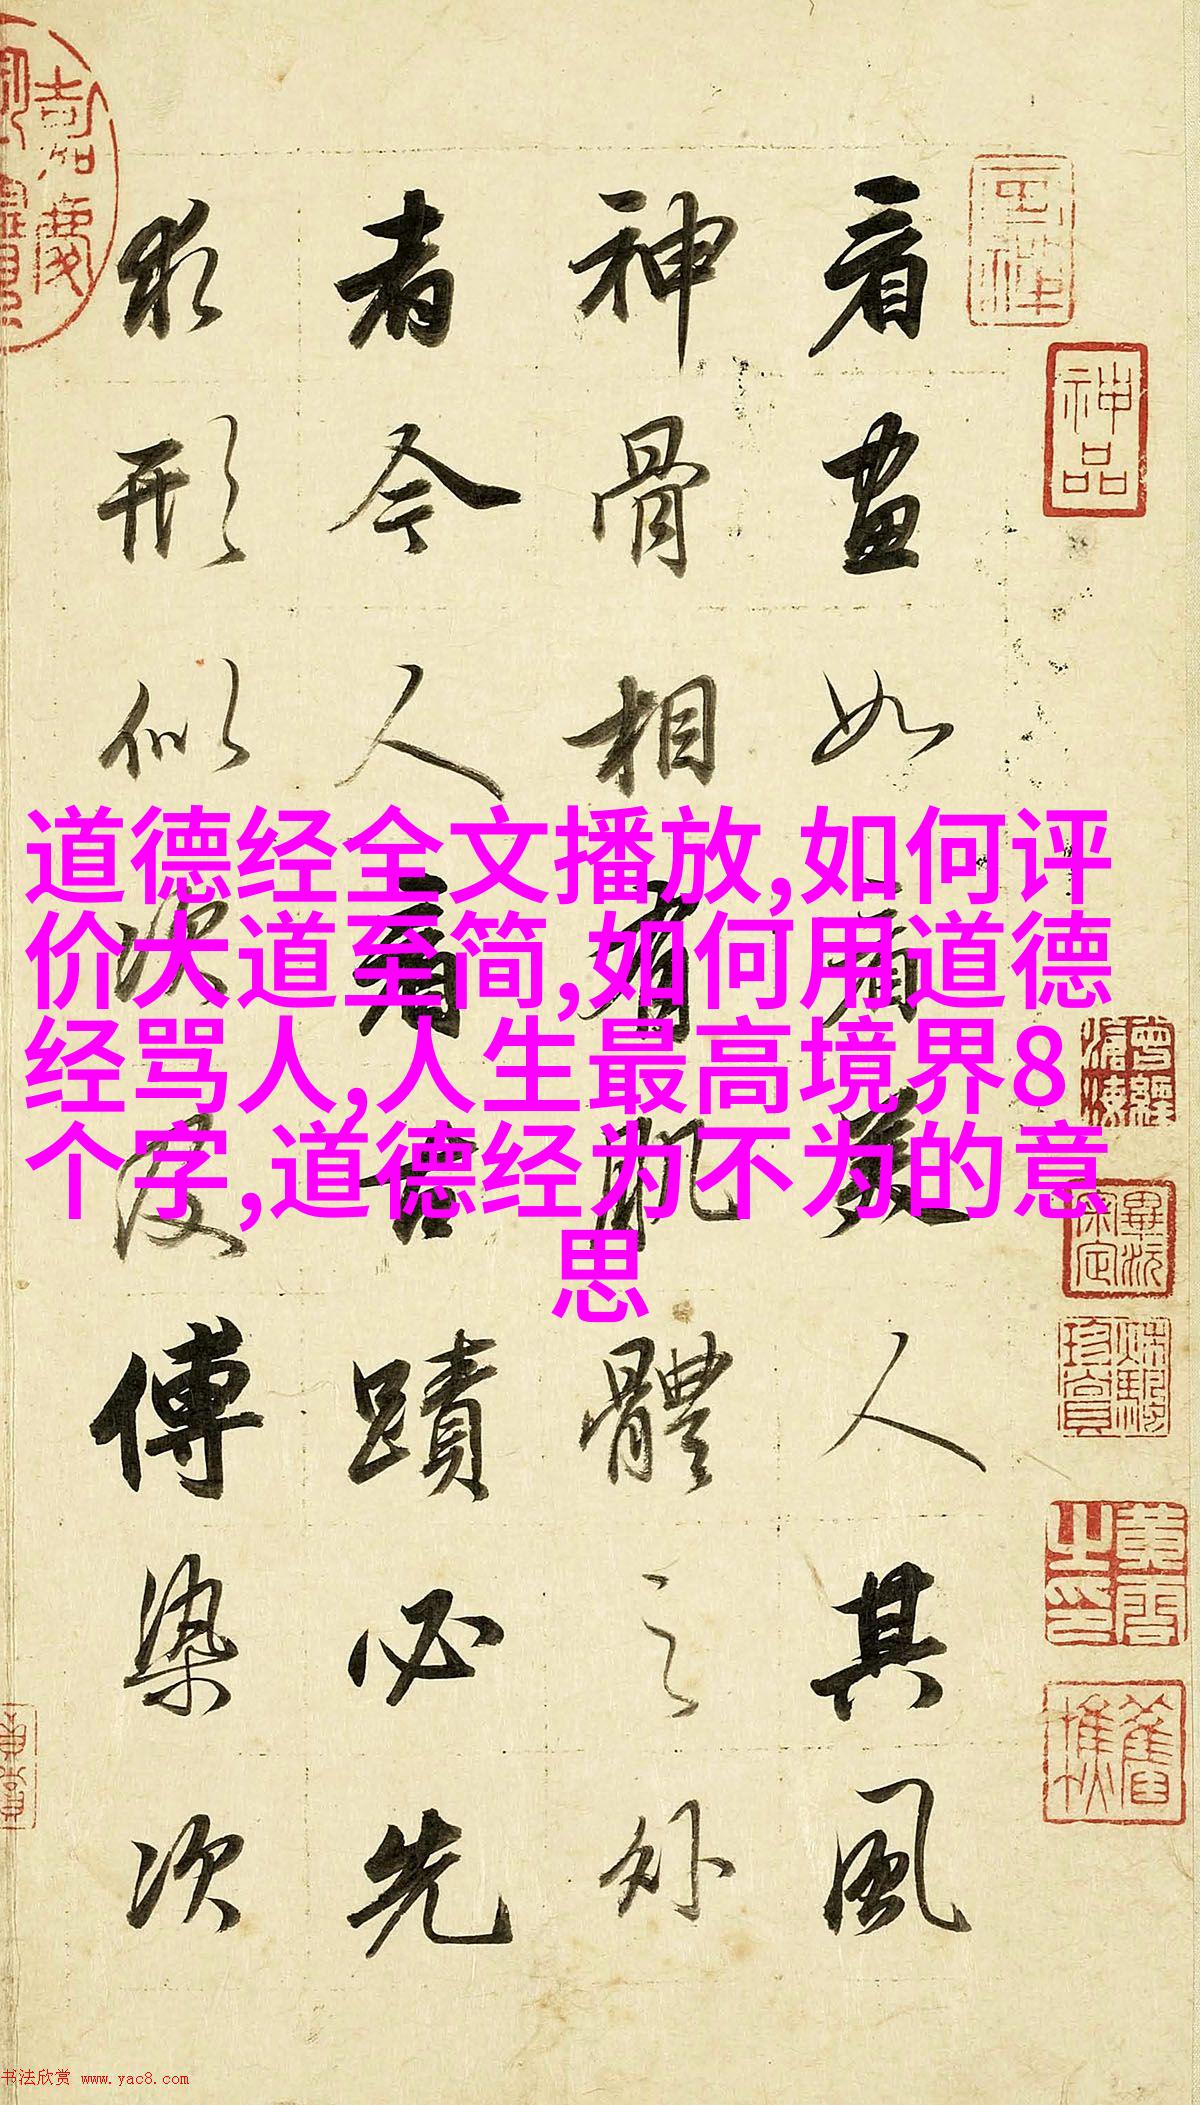 看畫如看美人其風
神骨相有肌體之外
者今人看古蹟必先
求形似次及傅染次
道德经全文播放,如何评
价大道至简,如何用道德
经骂人,人生最高境界8
个字,道德经为不为的意
思
神品
嘉慶
书法欣赏 www.yac8.com